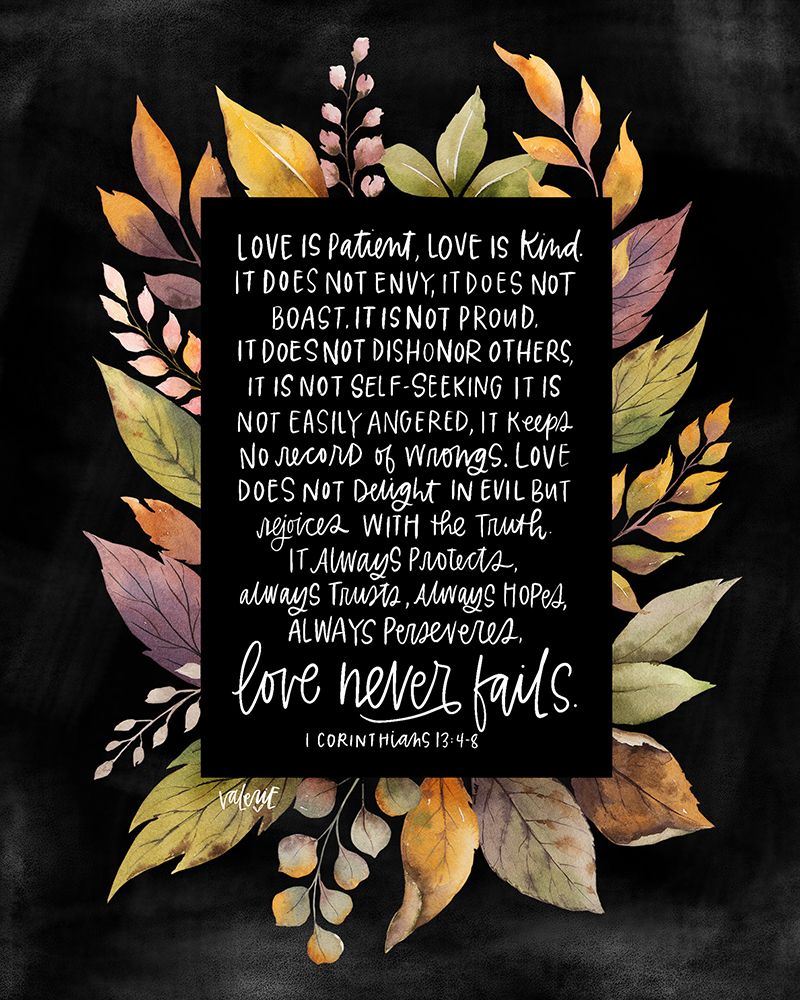 LOVE IS Patient, LOVE IS Kind.
IT DOES NOT ENVY, IT DOES NOT
BOAST. IT IS NOT PROUD.
IT DOES NOT DISHONOR OTHERS,
IT IS NOT SELF-SEEKING IT IS
NOT EASILY ANGERED, IT Keeps
NO record of wrongs. LOVE
DOES NOT Delight IN EVIL BUT
rejoices WITH the Truth.
IT ALWAYS Protects,
always Trusts, Always HOPES,
ALWAYS Perseveres.
love never fails.
1 CORINTHIANS 13:4-8
Valerie